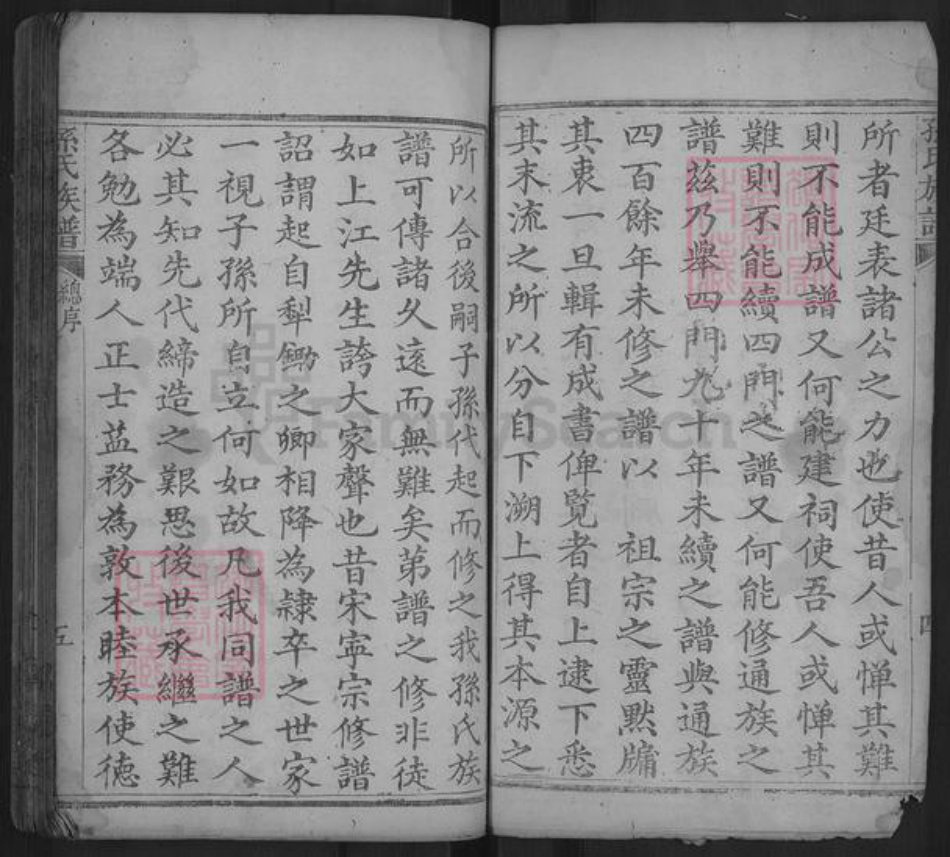 所者廷表諸公之力也使昔人或惮其難
則不能成譜又何能建祠使吾人或惮其
難則不能續四門之譜又何能修通族之
譜茲乃舉四門九十年未續之譜與通族
四百餘年未修之譜以　祖宗之靈默牖
其衷一旦輯有成書俾覧者自上逮下悉
其末流之所以分自下溯上得其本源之
所以合後嗣子孫代起而修之我孫氏族
譜可傳諸久遠而無難矣第譜之修非徒
如上江先生誇大家聲也昔宋寧宗修譜
詔謂起自犁鋤之卿相降為隷卒之世家
一視子孫所自立何如故凡我同譜之人
必其知先代締造之艱思後世承繼之難
各勉為端人正士益務為敦本睦族使徳
孫氏族譜
總序
五
孫氏族譜
四
FamilySearch